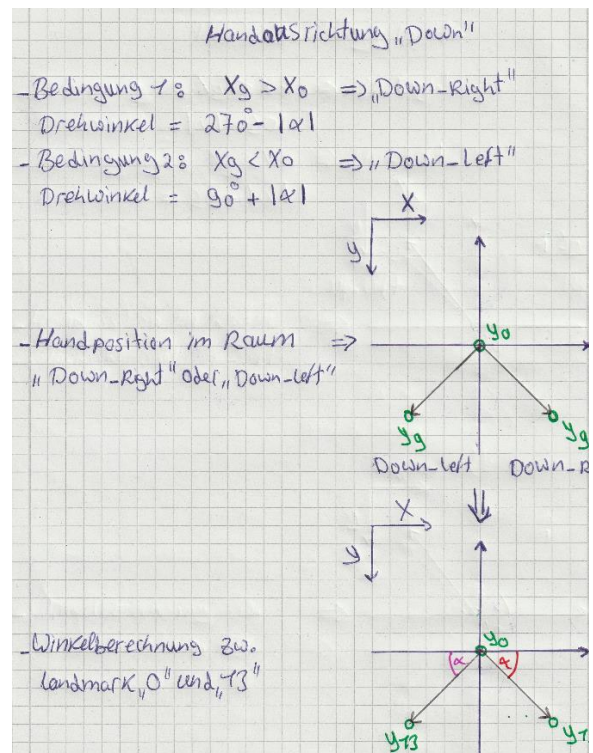 Handausrichtung „Down"
- Bedingung 1: X9 > X0 => „Down-Right"
Drehwinkel = 270° - |α|
- Bedingung 2: X9 < X0 => „Down-Left"
Drehwinkel = 90° + |α|
X
y
y0
- Handposition im Raum =>
„Down-Right" oder „Down-left"
y9
y9
Down-left
Down-R
X
y
- Winkelberechnung zw.
landmark „0" und „13"
y0
α
α
y13
y1